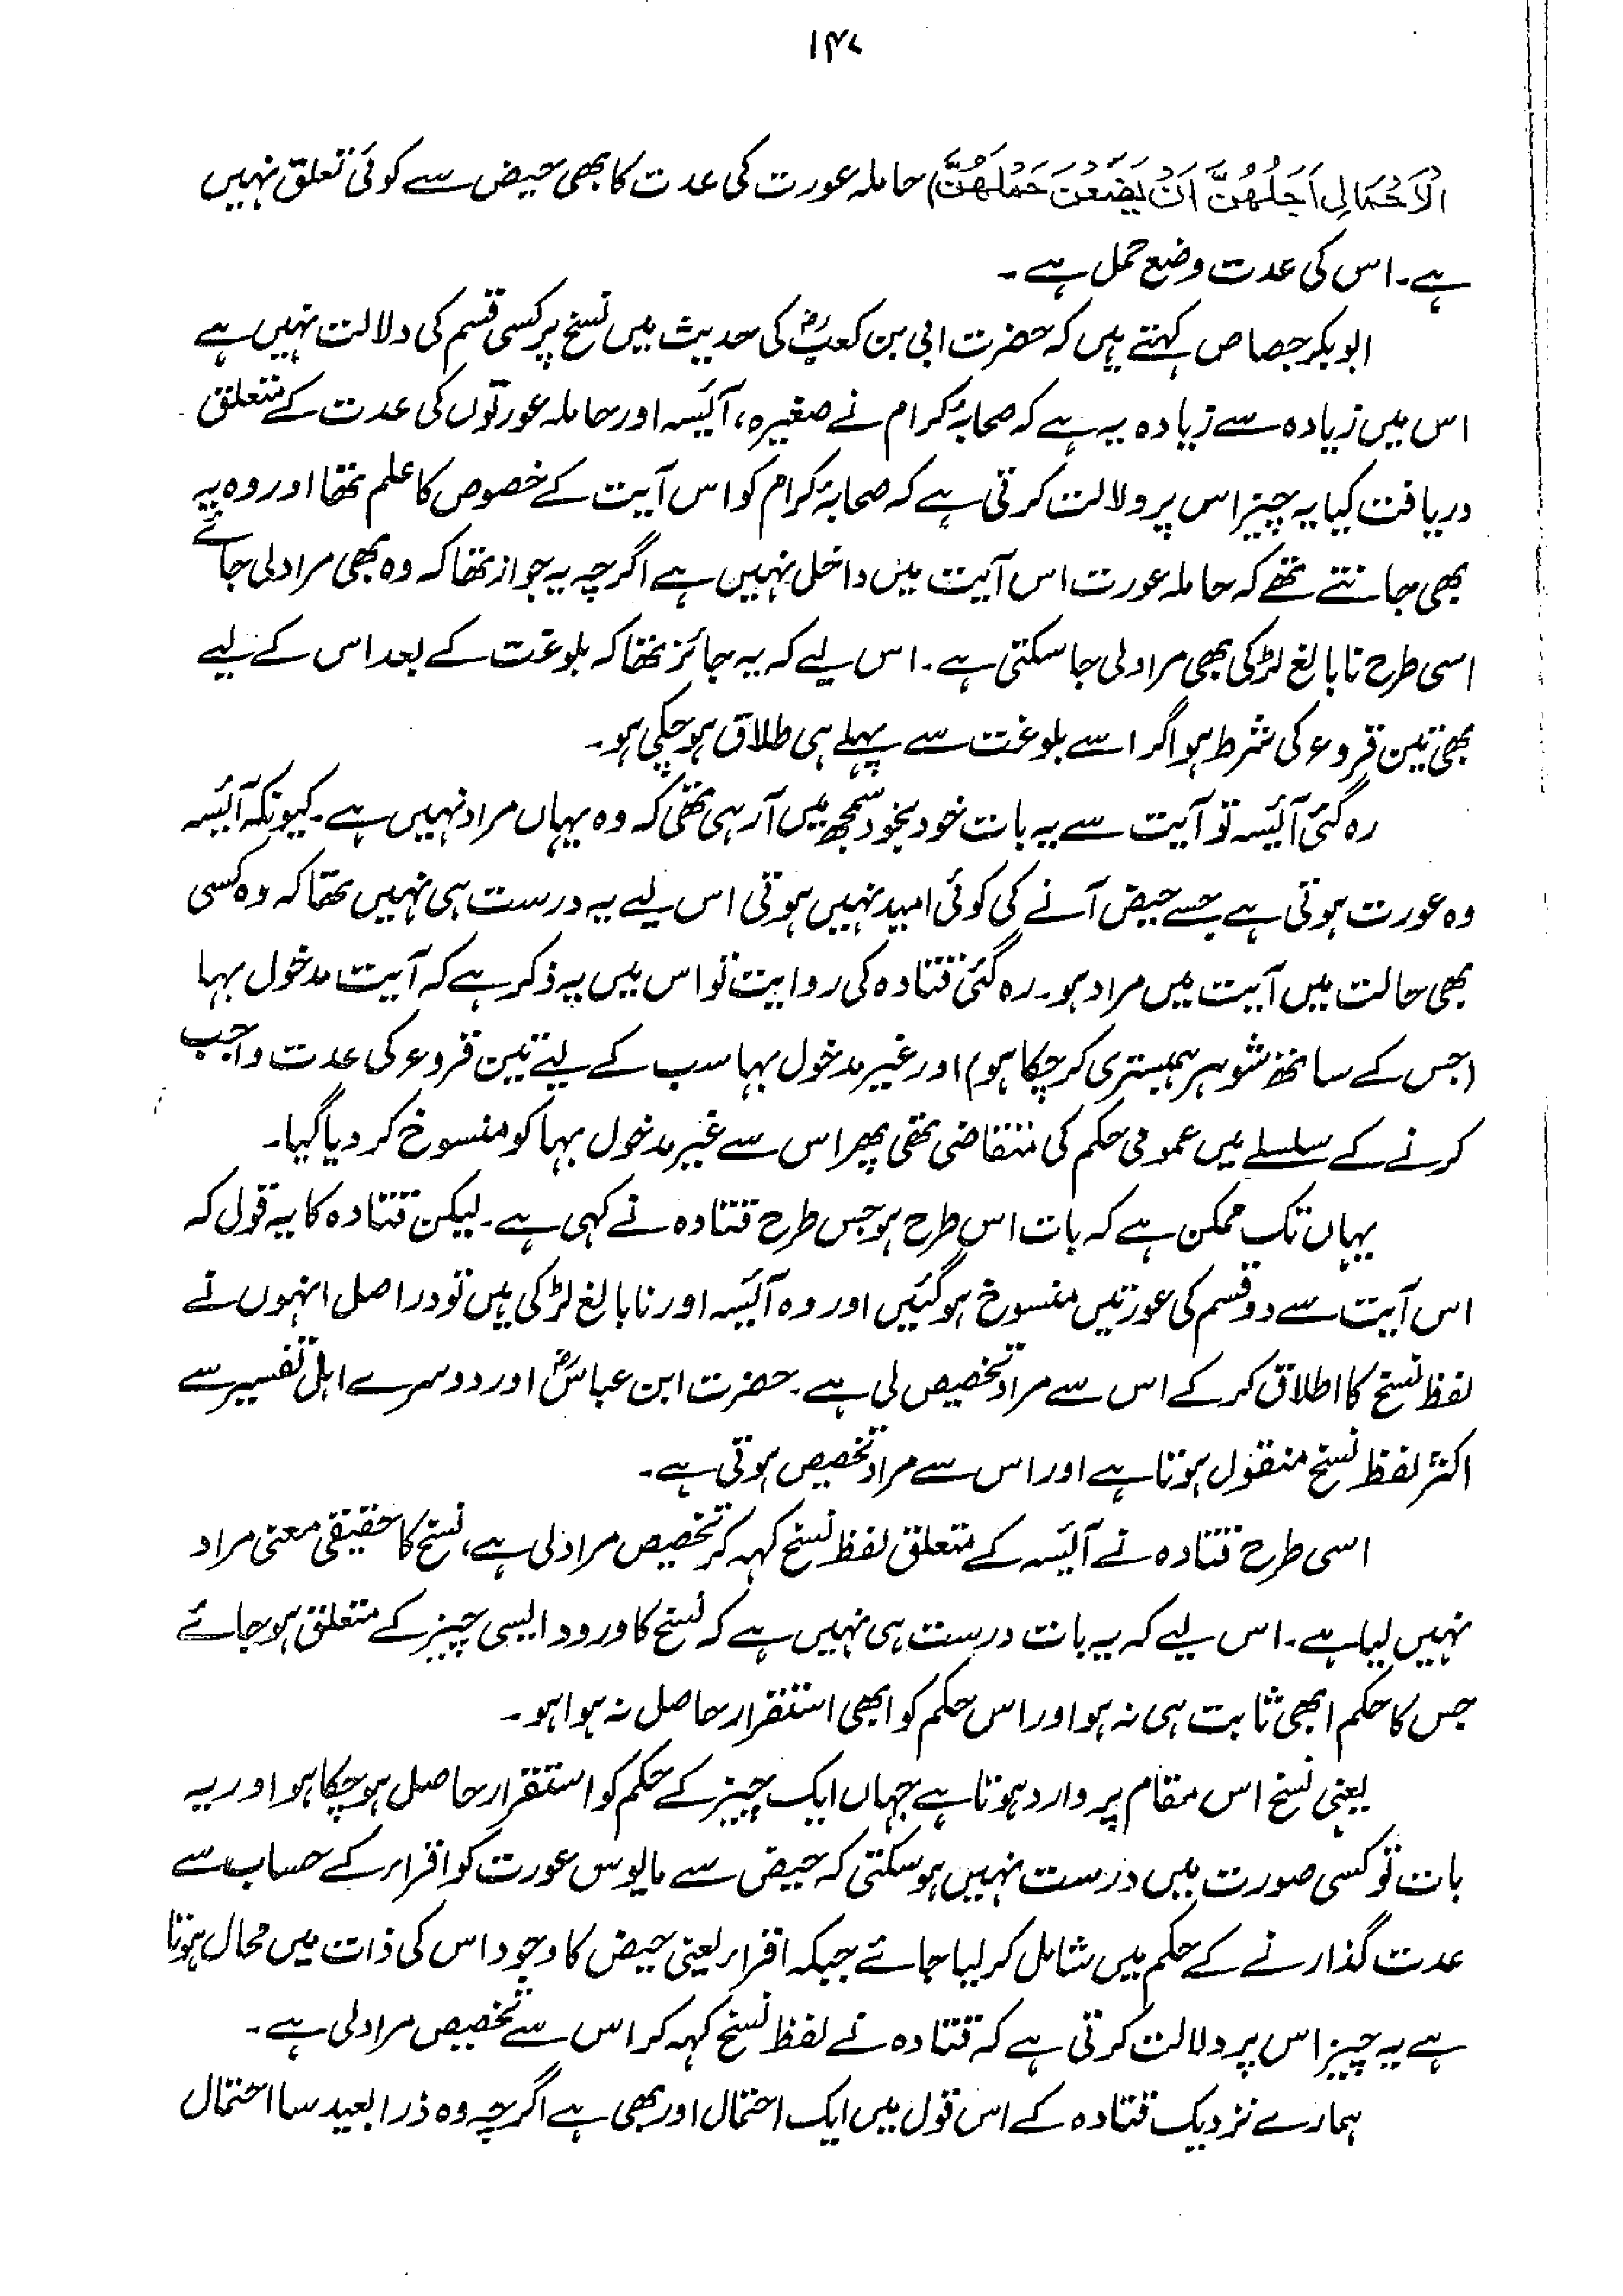 ۱۴۷
الْاَحْمَالِ اَجَلُهُنَّ اَنْ يَضَعْنَ حَمْلَهُنَّ) حاملہ عورت کی عدت کا بھی حیض سے کوئی تعلق نہیں
ہے۔ اس کی عدت وضع حمل ہے۔
ابوبکر جصاص کہتے ہیں کہ حضرت ابی بن کعبؓ کی حدیث میں نسخ پر کسی قسم کی دلالت نہیں ہے
اس میں زیادہ سے زیادہ یہ ہے کہ صحابۂ کرام نے صغیرہ، آئیسہ اور حاملہ عورتوں کی عدت کے متعلق
دریافت کیا یہ چیز اس پر دلالت کرتی ہے کہ صحابۂ کرام کو اس آیت کے خصوص کا علم تھا اور وہ یہ
بھی جانتے تھے کہ حاملہ عورت اس آیت میں داخل نہیں ہے اگرچہ یہ جواز تھا کہ وہ بھی مراد لی جائے
اسی طرح نابالغ لڑکی بھی مراد لی جا سکتی ہے۔ اس لیے کہ یہ جائز تھا کہ بلوغت کے بعد اس کے لیے
بھی تین قروء کی شرط ہو اگر اسے بلوغت سے پہلے ہی طلاق ہو چکی ہو۔
رہ گئی آئیسہ تو آیت سے یہ بات خود بخود سمجھ میں آرہی تھی کہ وہ یہاں مراد نہیں ہے۔ کیونکہ آئیسہ
وہ عورت ہوتی ہے جسے حیض آنے کی کوئی امید نہیں ہوتی اس لیے یہ درست ہی نہیں تھا کہ وہ کسی
بھی حالت میں آیت میں مراد ہو۔ رہ گئی قتادہ کی روایت تو اس میں یہ ذکر ہے کہ آیت مدخول بہا
(جس کے ساتھ شوہر ہمبستری کر چکا ہو) اور غیر مدخول بہا سب کے لیے تین قروء کی عدت واجب
کرنے کے سلسلے میں عمومی حکم کی متقاضی تھی پھر اس سے غیر مدخول بہا کو منسوخ کر دیا گیا۔
یہاں تک ممکن ہے کہ بات اس طرح ہو جس طرح قتادہ نے کہی ہے۔ لیکن قتادہ کا یہ قول کہ
اس آیت سے دو قسم کی عورتیں منسوخ ہو گئیں اور وہ آئیسہ اور نابالغ لڑکی ہیں تو دراصل انہوں نے
لفظ نسخ کا اطلاق کر کے اس سے مراد تخصیص لی ہے۔ حضرت ابن عباسؓ اور دوسرے اہل تفسیر سے
اکثر لفظ نسخ منقول ہوتا ہے اور اس سے مراد تخصیص ہوتی ہے۔
اسی طرح قتادہ نے آئیسہ کے متعلق لفظ نسخ کہہ کر تخصیص مراد لی ہے، نسخ کا حقیقی معنی مراد
نہیں لیا ہے۔ اس لیے کہ یہ بات درست ہی نہیں ہے کہ نسخ کا ورود ایسی چیز کے متعلق ہو جائے
جس کا حکم ابھی ثابت ہی نہ ہو اور اس حکم کو ابھی استقرار حاصل نہ ہوا ہو۔
یعنی نسخ اس مقام پر وارد ہوتا ہے جہاں ایک چیز کے حکم کو استقرار حاصل ہو چکا ہو اور یہ
بات تو کسی صورت میں درست نہیں ہو سکتی کہ حیض سے مایوس عورت کو اقراء کے حساب سے
عدت گذارنے کے حکم میں شامل کر لیا جائے جبکہ اقراء یعنی حیض کا وجود اس کی ذات میں محال ہوتا
ہے یہ چیز اس پر دلالت کرتی ہے کہ قتادہ نے لفظ نسخ کہہ کر اس سے تخصیص مراد لی ہے۔
ہمارے نزدیک قتادہ کے اس قول میں ایک احتمال اور بھی ہے اگرچہ وہ ذرا بعید سا احتمال